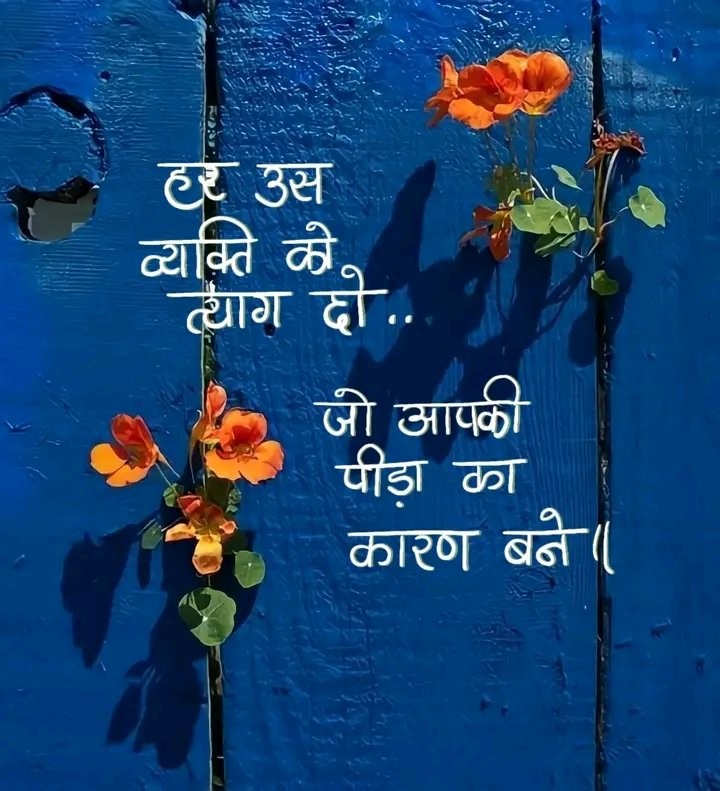 हर उस
व्यक्ति को
त्याग दो..
जो आपकी
पीड़ा का
कारण बने॥